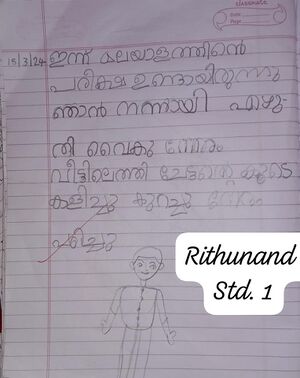 classmate
Date
Page
15/3/24 ഇന്ന് മലയാളത്തിൻെ
പരീക്ഷ ഉണ്ടായിരുന്നു
ഞാൻ നന്നായി എഴു-
തി വൈകു ന്നേരം
വീട്ടിലെത്തി ചേട്ടൻ്റെ കൂടെ
കളിച്ചു കുറച്ചു നേരം
പഠിച്ചു
Rithunand
Std. 1